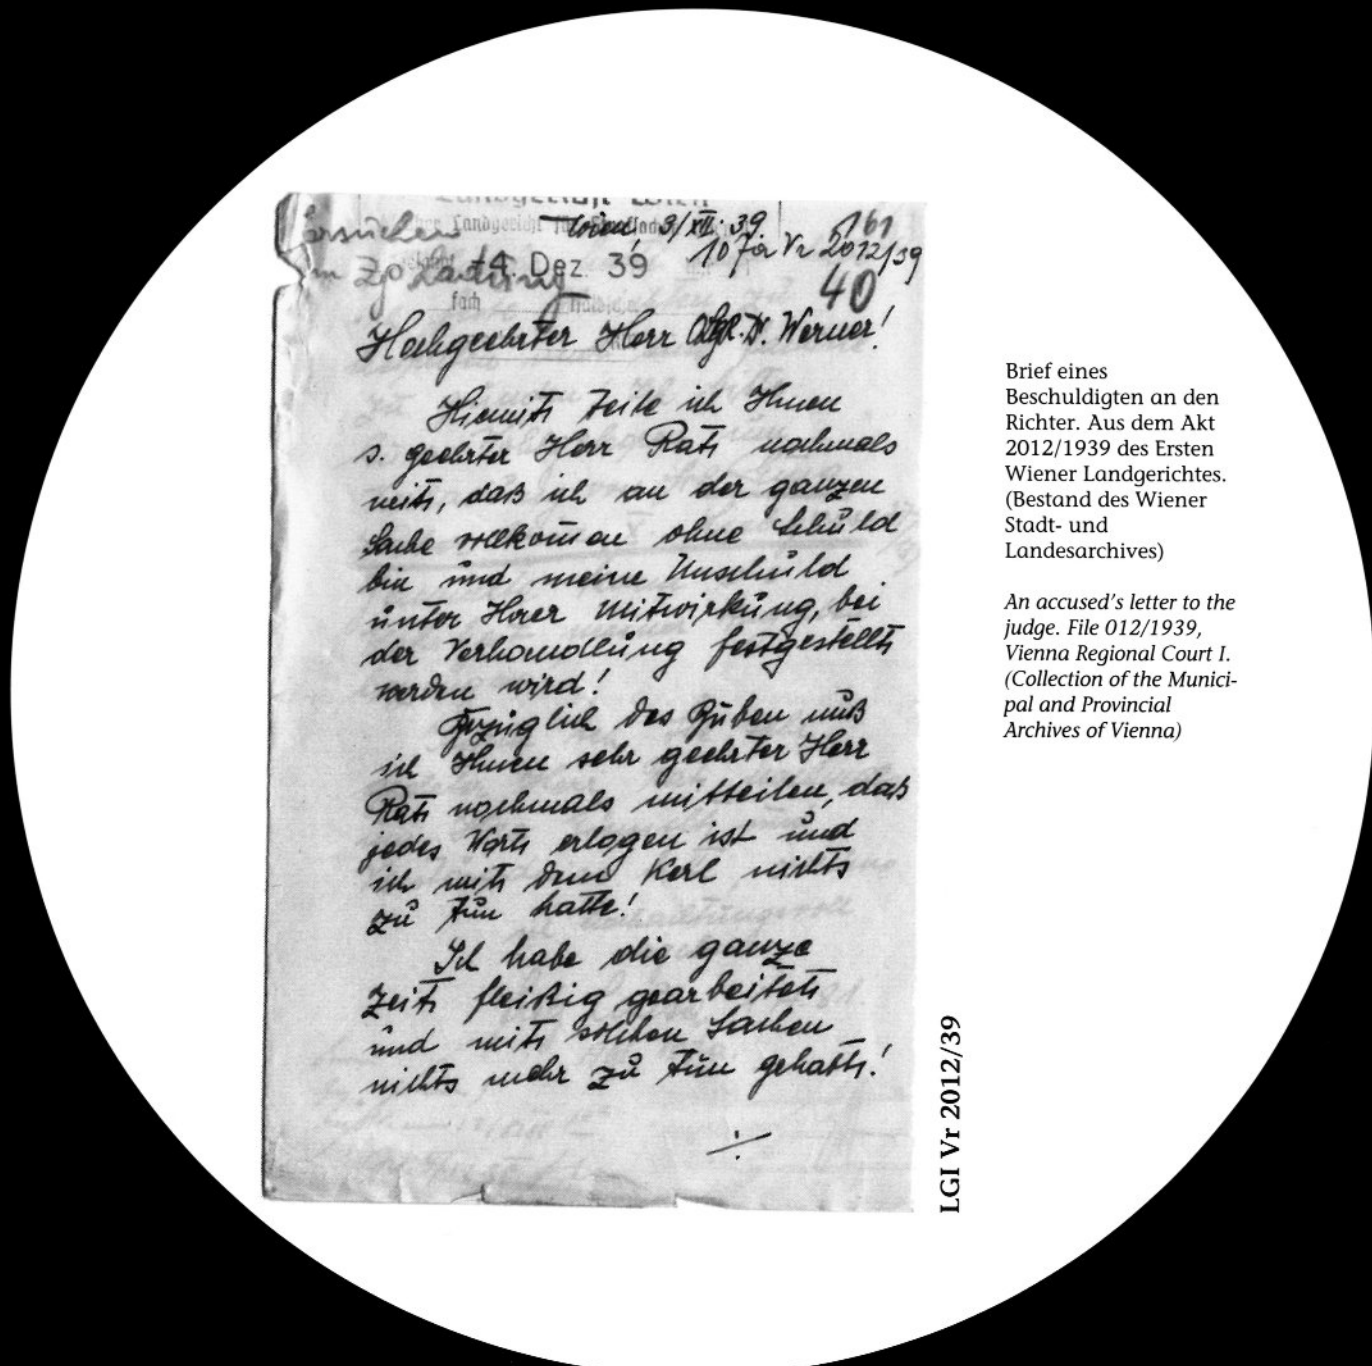 Landgericht Wien
Landgericht für
Wien, 3/XII. 39
161
Ersuchen
10 Jor Vr 2012/39
-4. Dez. 39
zp Ladung
40
fach
Hochgeehrter Herr Dr. Werner!
Hiemit teile ich Ihnen
s. geehrter Herr Rat nochmals
mit, daß ich an der ganzen
Sache vollkommen ohne Schuld
bin und meine Unschuld
unter Ihrer Mitwirkung, bei
der Verhandlung festgestellt
werden wird!
Bezüglich des Buben muß
ich Ihnen sehr geehrter Herr
Rat nochmals mitteilen, daß
jedes Wort erlogen ist und
ich mit dem Kerl nichts
zu tun hatte!
Ich habe die ganze
Zeit fleißig gearbeitet
und mit solchen Sachen
nichts mehr zu tun gehabt!
./.
LGI Vr 2012/39
Brief eines
Beschuldigten an den
Richter. Aus dem Akt
2012/1939 des Ersten
Wiener Landgerichtes.
(Bestand des Wiener
Stadt- und
Landesarchives)
An accused's letter to the
judge. File 012/1939,
Vienna Regional Court I.
(Collection of the Munici-
pal and Provincial
Archives of Vienna)